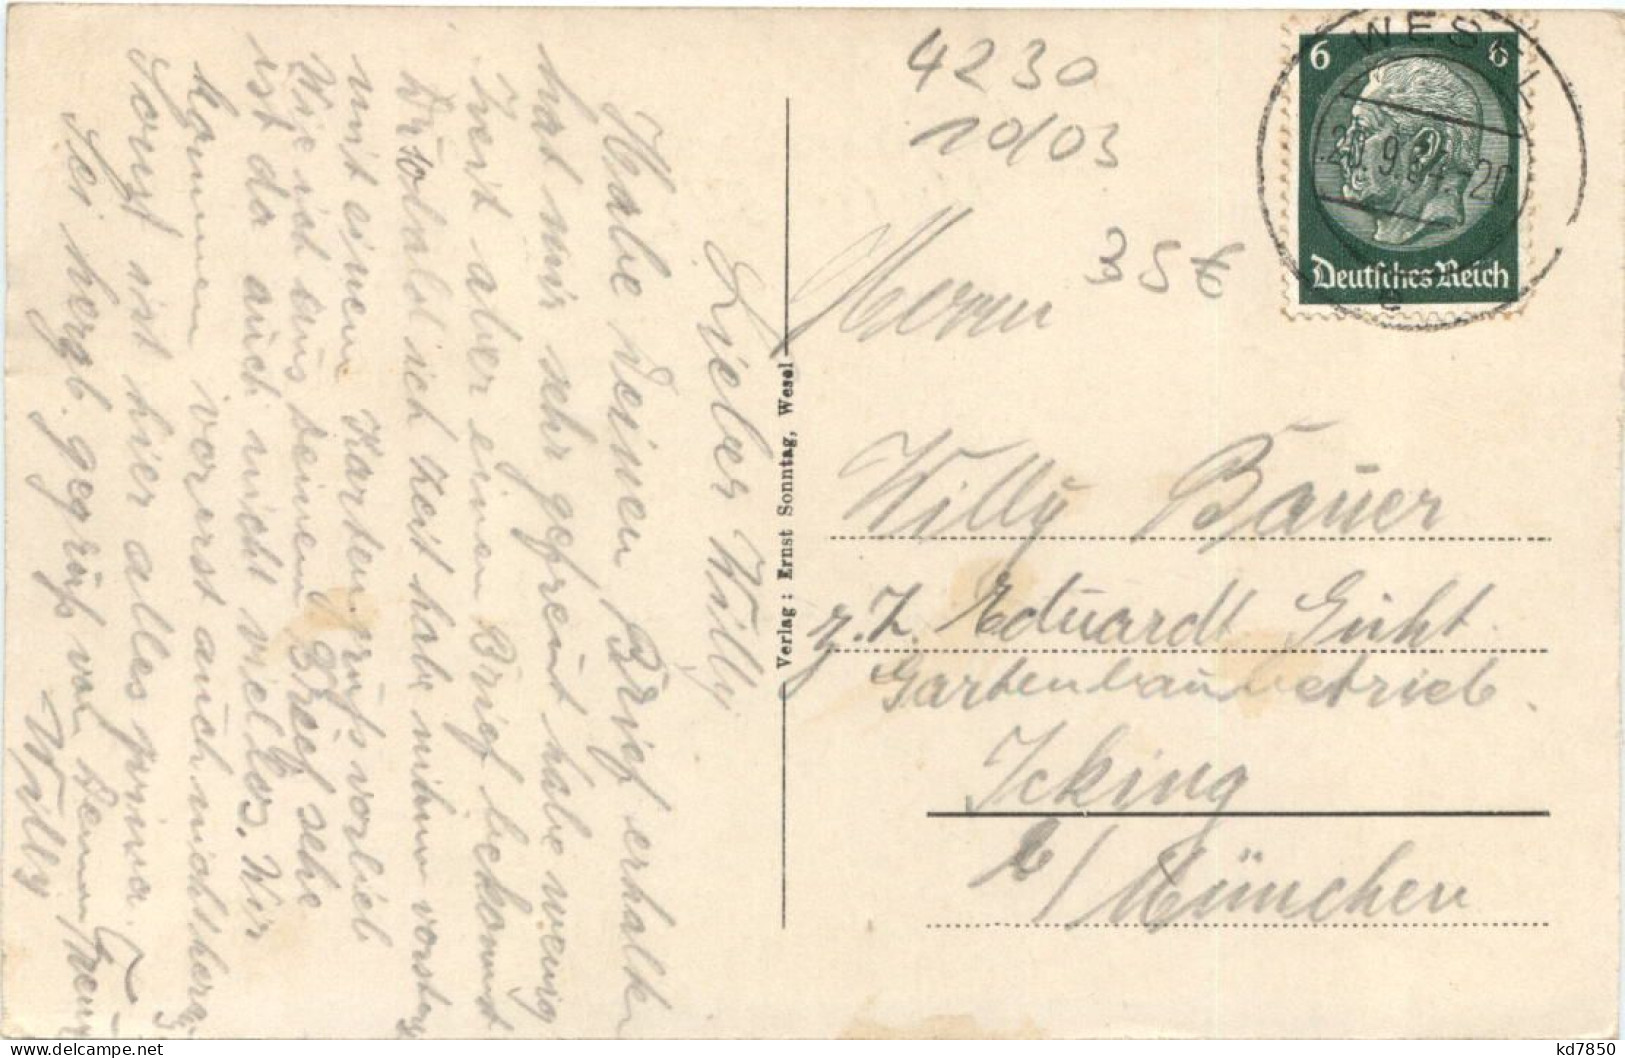 Lieber Willy
Habe deinen Brief erhalten
hat mir sehr gefreut habe wenig
Zeit aber einen Brief bekommst
Du sobald ich Zeit habe nehme vorste
mit einem Kartengruß vorlieb
Wie ich aus deinem Brief sehe
ist da auch nicht viel los. Wir
kommen vorerst auch nicht
Sonst ist hier alles prima.
Sei herzl. gegrüßt von deinem
Willy
Verlag: Ernst Sonntag, Wesel
4230
10/03
35€
WESEL
6 6
9.34.-20
Deutsches Reich
Herrn
Willy Bauer
z. Z. Eduardt
Gartenbaubetrieb.
Icking
b/ München
kd7850